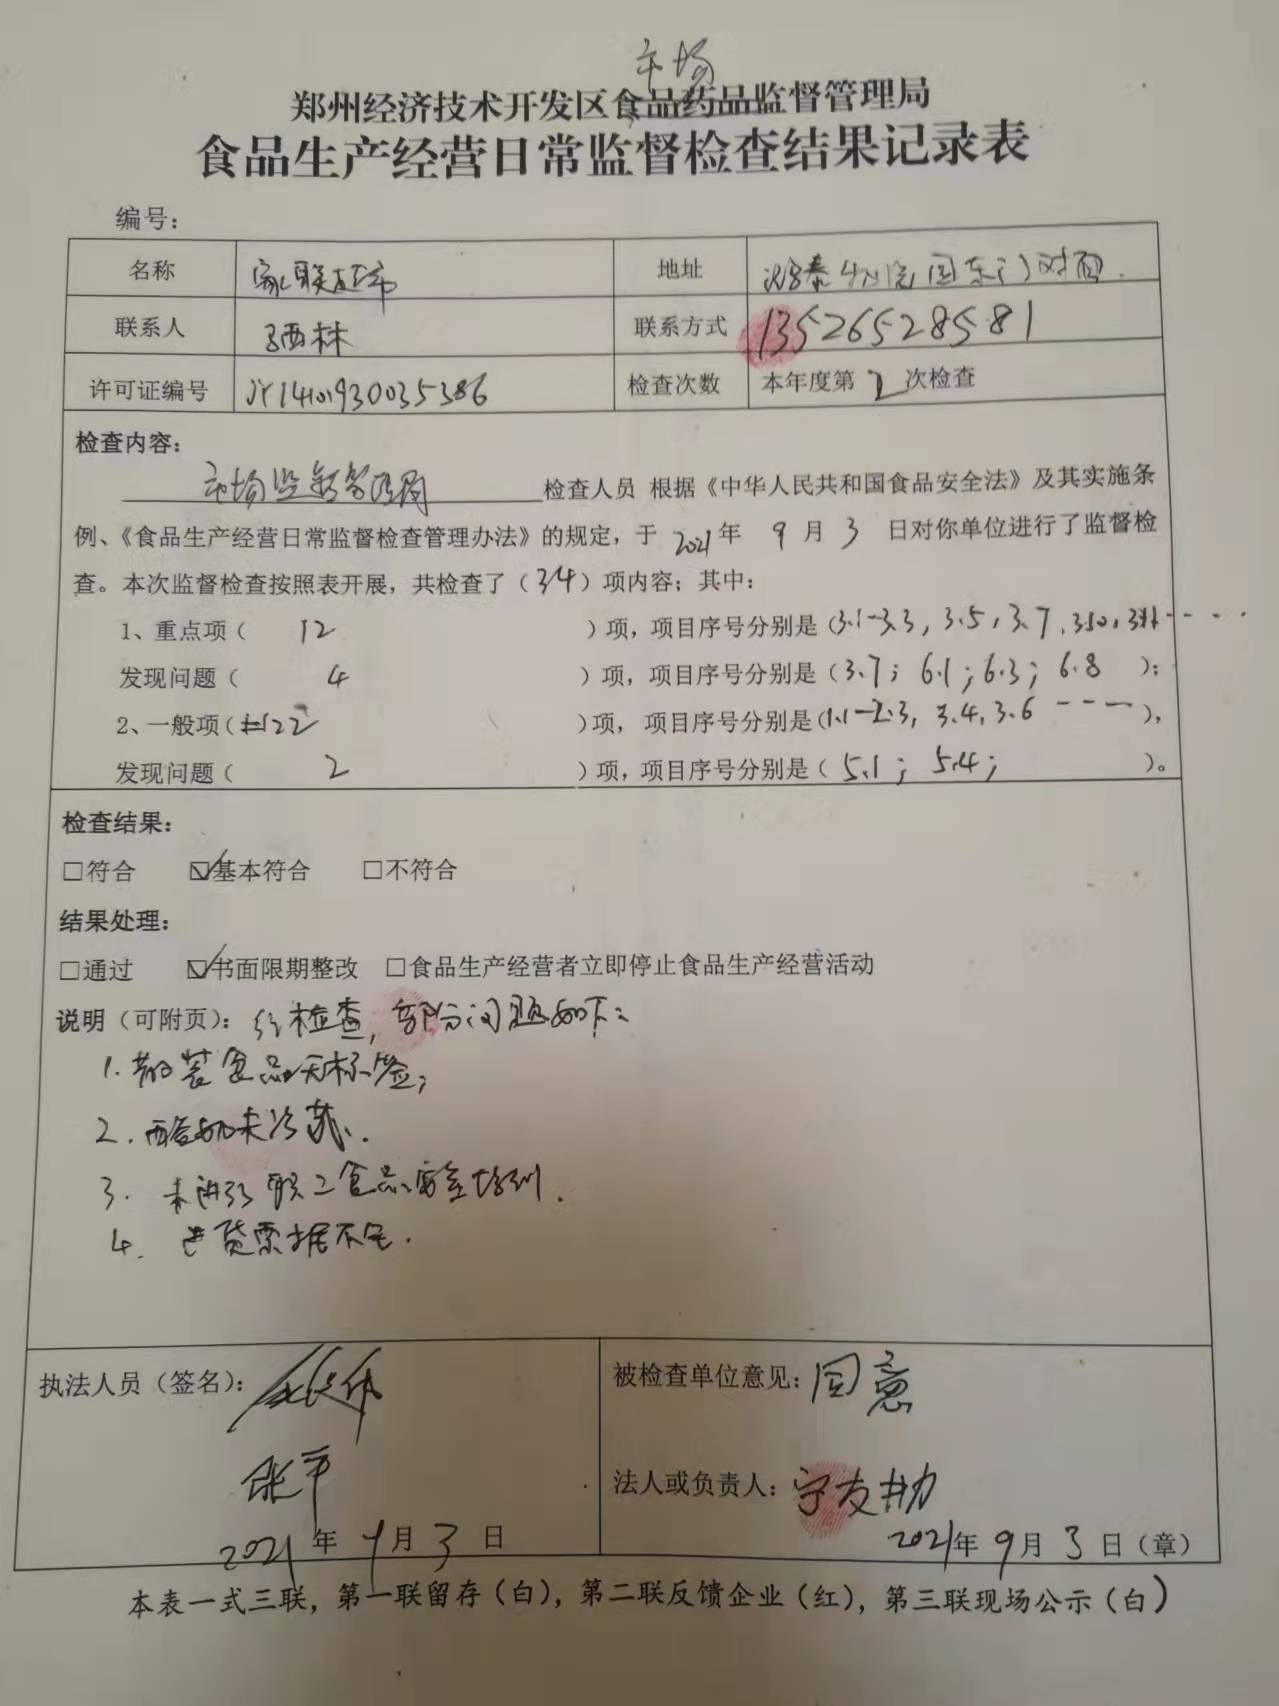 市场
郑州经济技术开发区食品药品监督管理局
食品生产经营日常监督检查结果记录表
编号：
名称 家联超市 地址 东门对面.
联系人 林 联系方式 13526528581
许可证编号 JY14101930035386 检查次数 本年度第2次检查
检查内容：
市场监督管理局 检查人员 根据《中华人民共和国食品安全法》及其实施条
例、《食品生产经营日常监督检查管理办法》的规定，于 2021年 9 月 3 日对你单位进行了监督检
查。本次监督检查按照表开展，共检查了（34）项内容；其中：
1、重点项（ 12 ）项，项目序号分别是（3.1-3.3, 3.5, 3.7, 3.10, 3.11
发现问题（ 4 ）项，项目序号分别是（3.7；6.1；6.3；6.8 ）；
2、一般项（22 ）项，项目序号分别是（1.1-2.3, 3.4, 3.6 ----），
发现问题（ 2 ）项，项目序号分别是（5.1；5.4； ）。
检查结果：
□符合 ☑基本符合 □不符合
结果处理：
□通过 ☑书面限期整改 □食品生产经营者立即停止食品生产经营活动
说明（可附页）：经检查，部分问题如下：
1. 散装食品无标签；
2. 酸奶未冷藏.
3. 未进行职工食品安全培训.
4. 进货票据不全.
执法人员（签名）： 被检查单位意见：同意
张平 法人或负责人：宁友勋
2021 年 9 月 3 日 2021年 9 月 3 日（章）
本表一式三联，第一联留存（白），第二联反馈企业（红），第三联现场公示（白）